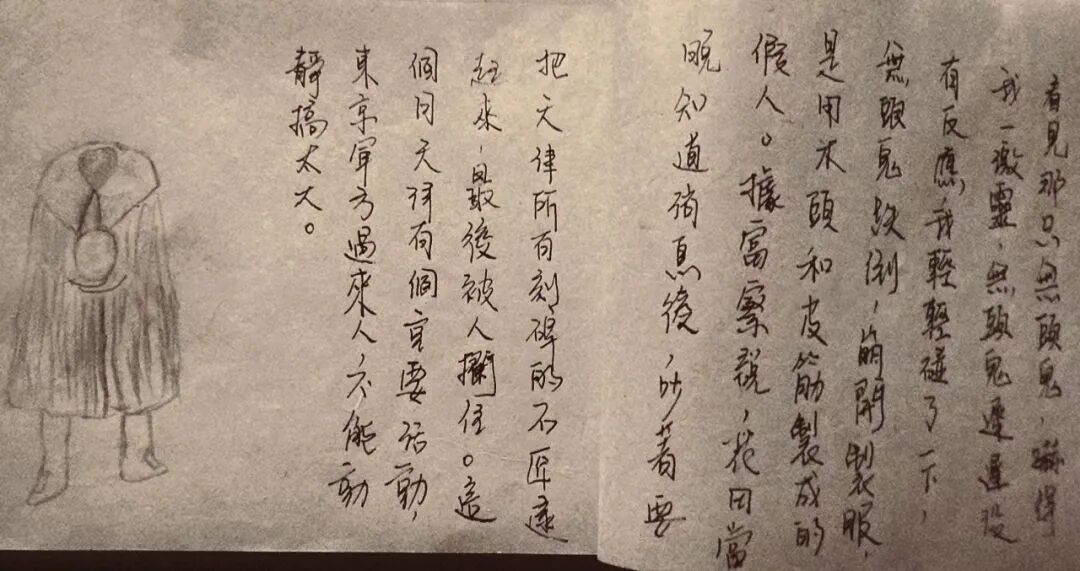 看見那只無頭鬼，嚇得
我一激靈，無頭鬼遲遲没
有反應，我輕輕碰了一下，
無頭鬼放倒，崩開製服，
是用木頭和皮筋製成的
假人。據富察説，花田當
晚知道消息後，吵着要
把天津所有刻碑的石匠逮
起來，最後被人攔住。這
個月天津有個重要活動，
東京軍方過來人，不能動
静搞太大。